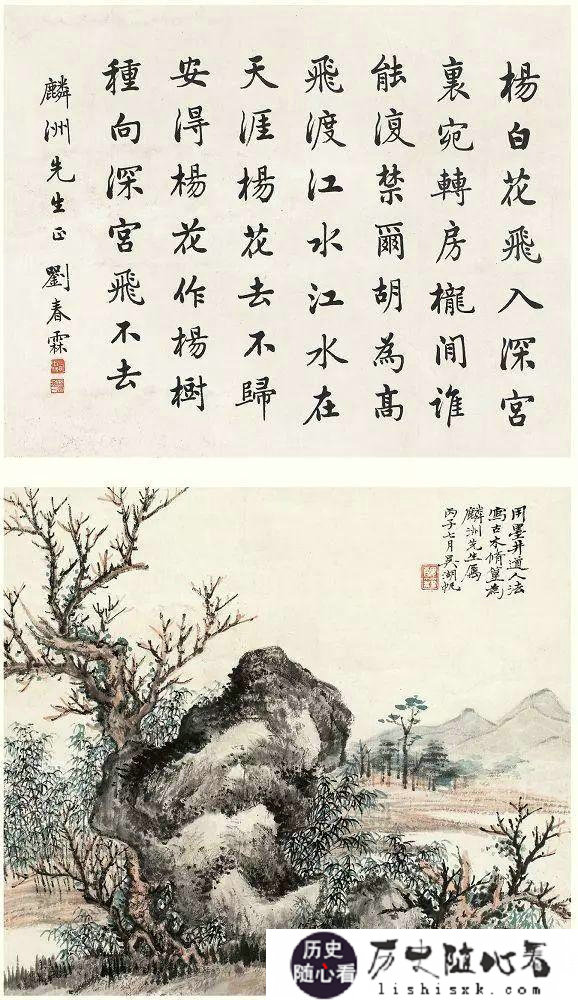 楊白花飛入深宮
裏宛轉房櫳間誰
能復禁爾胡為高
飛渡江水江水在
天涯楊花去不歸
安得楊花作楊樹
種向深宮飛不去
麟洲先生正 劉春霖
用墨井道人法
寫古木脩篁為
麟洲先生屬
丙子七月吳湖帆
历史
随心看
历史随心看
lishisxk.com